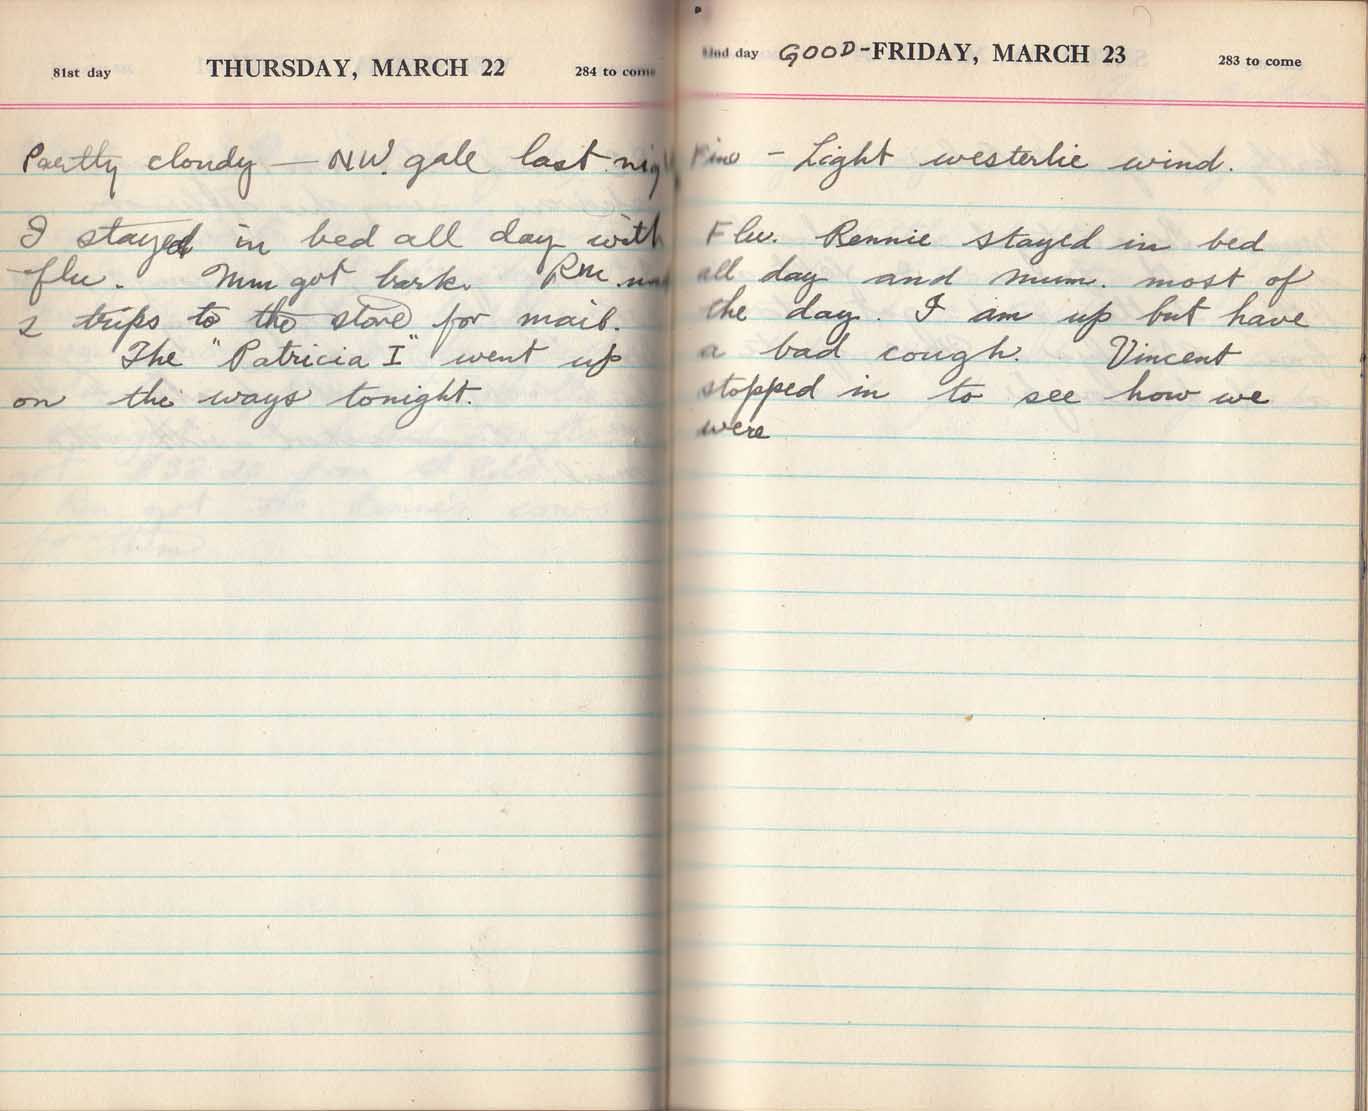 81st day THURSDAY, MARCH 22 284 to come
Partly cloudy — NW. gale last
I stayed in bed all day with
flu. Mm got bark. Rm
2 trips to the store for mail.
The "Patricia I" went up
on the ways tonight.
day GOOD-FRIDAY, MARCH 23 283 to come
Fine - Light westerlie wind.
Flu. Rennie stayed in bed
all day and Mum. most of
the day. I am up but have
a bad cough. Vincent
stopped in to see how we
were